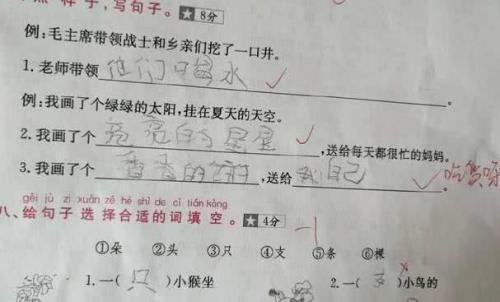 照样子,写句子。★8分
例:毛主席带领战士和乡亲们挖了一口井。
1.老师带领他们喝水。
例:我画了个绿绿的太阳,挂在夏天的天空。
2.我画了个亮亮的星星,送给每天都很忙的妈妈。
3.我画了个香香的,送给我自己。
gěi jù zi xuǎn zé hé shì de cí tián kòng
八、给句子选择合适的词填空。★4分 -1
①朵 ②头 ③只 ④支 ⑤条 ⑥棵
1.一(只)小猴坐 2.一(支)小鸟的